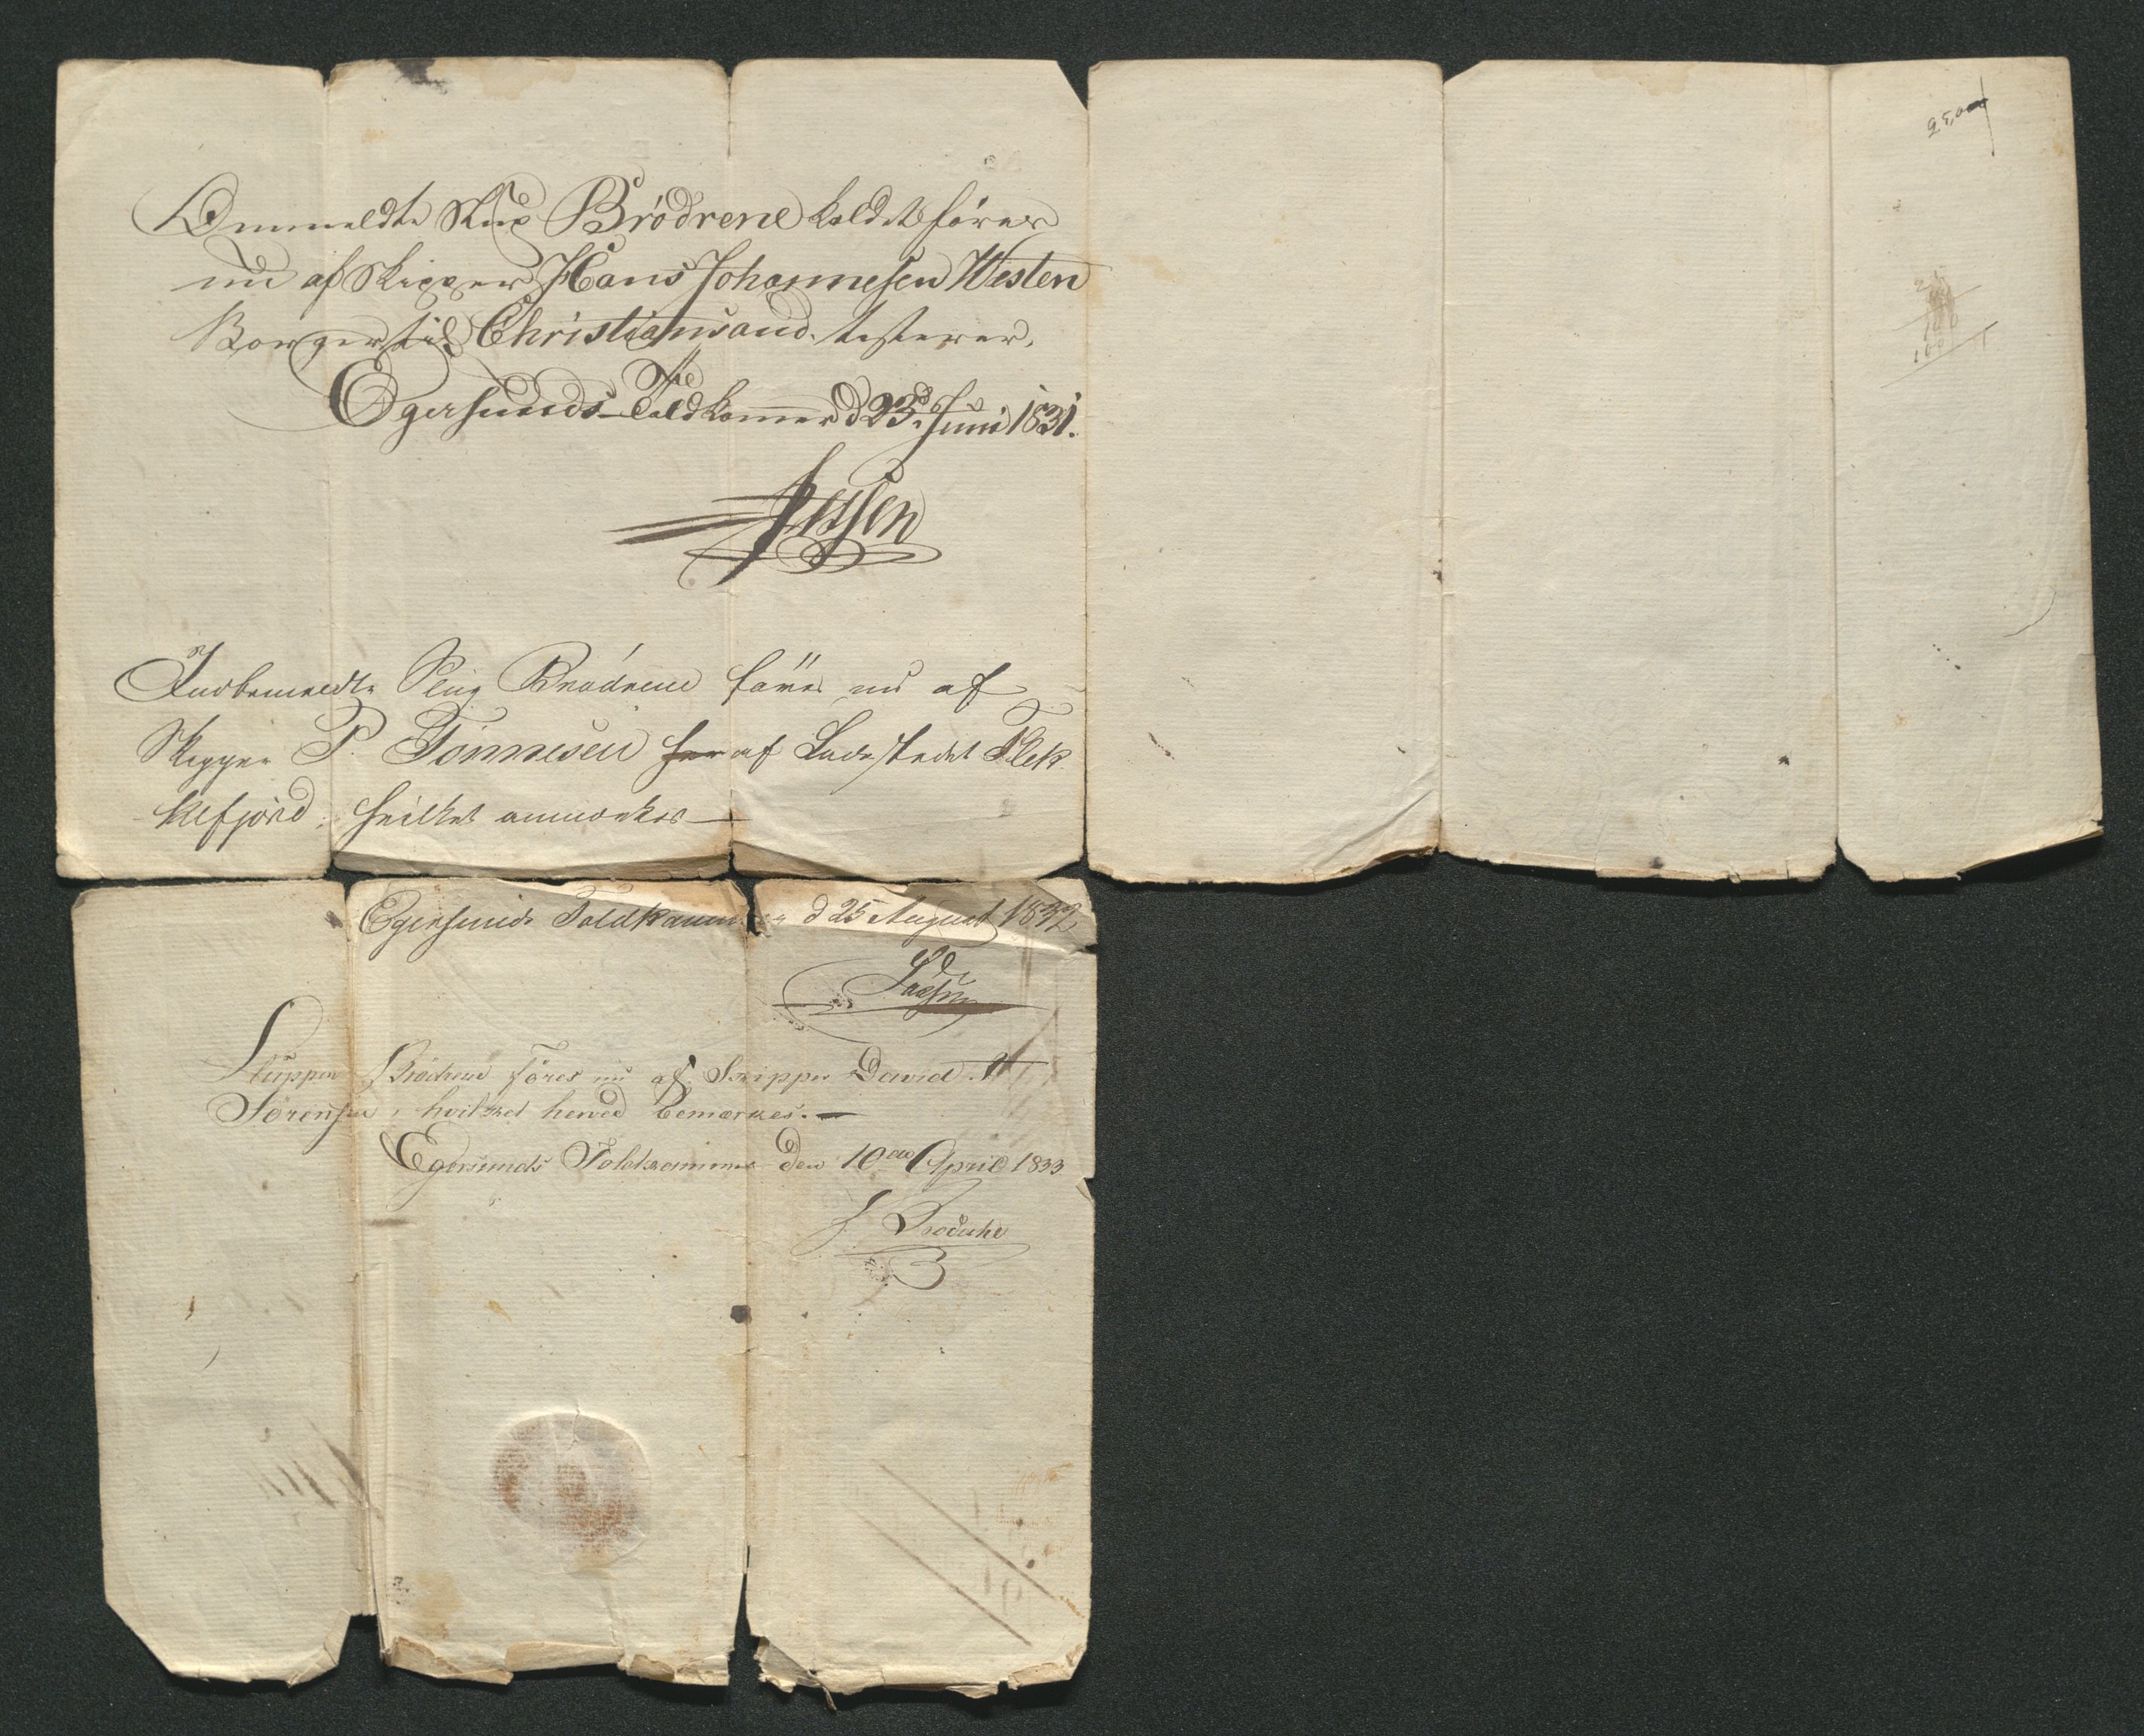 Ommeldte Slup Brödrene kaldet föres
nu af Skipper Hans Johannesen Westen
Borger til Christiansand, testerer.
Egersunds Toldkammer d 23d Juni 1831.
Jessen
Indbemeldte Slup Brödrene föres nu af
Skipper P. Tönnesen af Ladestedet Flek
kefjord, hvilket anmærkes
Egersunds Toldkammer d 25 August 1832
Sluppen Brödrene föres nu af Skipper David
Sörensen, hvilket herved bemærkes.
Egersunds Toldkammer den 10de April 1833